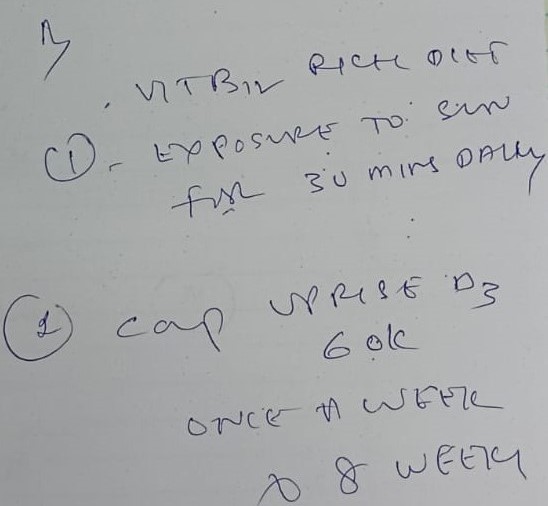 . VIT B12 RICH DIET
(1) - EXPOSURE TO SUN
for 30 mins DAILY
(2) cap UPRISE D3
60K
ONCE A WEEK
x 8 WEEKS